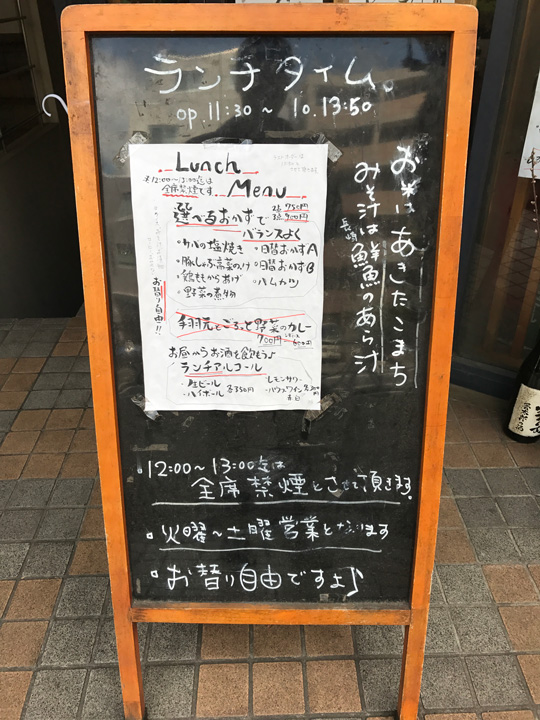 ランチタイム。
op.11:30～lo.13:50
お米はあきたこまち
みそ汁は長崎鮮魚のあら汁
Lunch
Menu
12:00～13:00迄は
全席禁煙です
選べるおかずで
2品 750円
3品 900円
バランスよく
・サバの塩焼き
・日替おかずA
・豚しゃぶ高菜のせ
・日替おかずB
・鶏ももからあげ
・ハムカツ
・野菜の煮物
お替り自由!!
手羽元とごろっと野菜のカレー
700円
お昼からお酒を飲もう♪
ランチアルコール
・生ビール
・ハイボール
各350円
・レモンサワー
・ハウスワイン
赤白
・12:00～13:00迄は
全席禁煙とさせて頂きます。
・火曜～土曜営業となります
・お替り自由ですよ♪